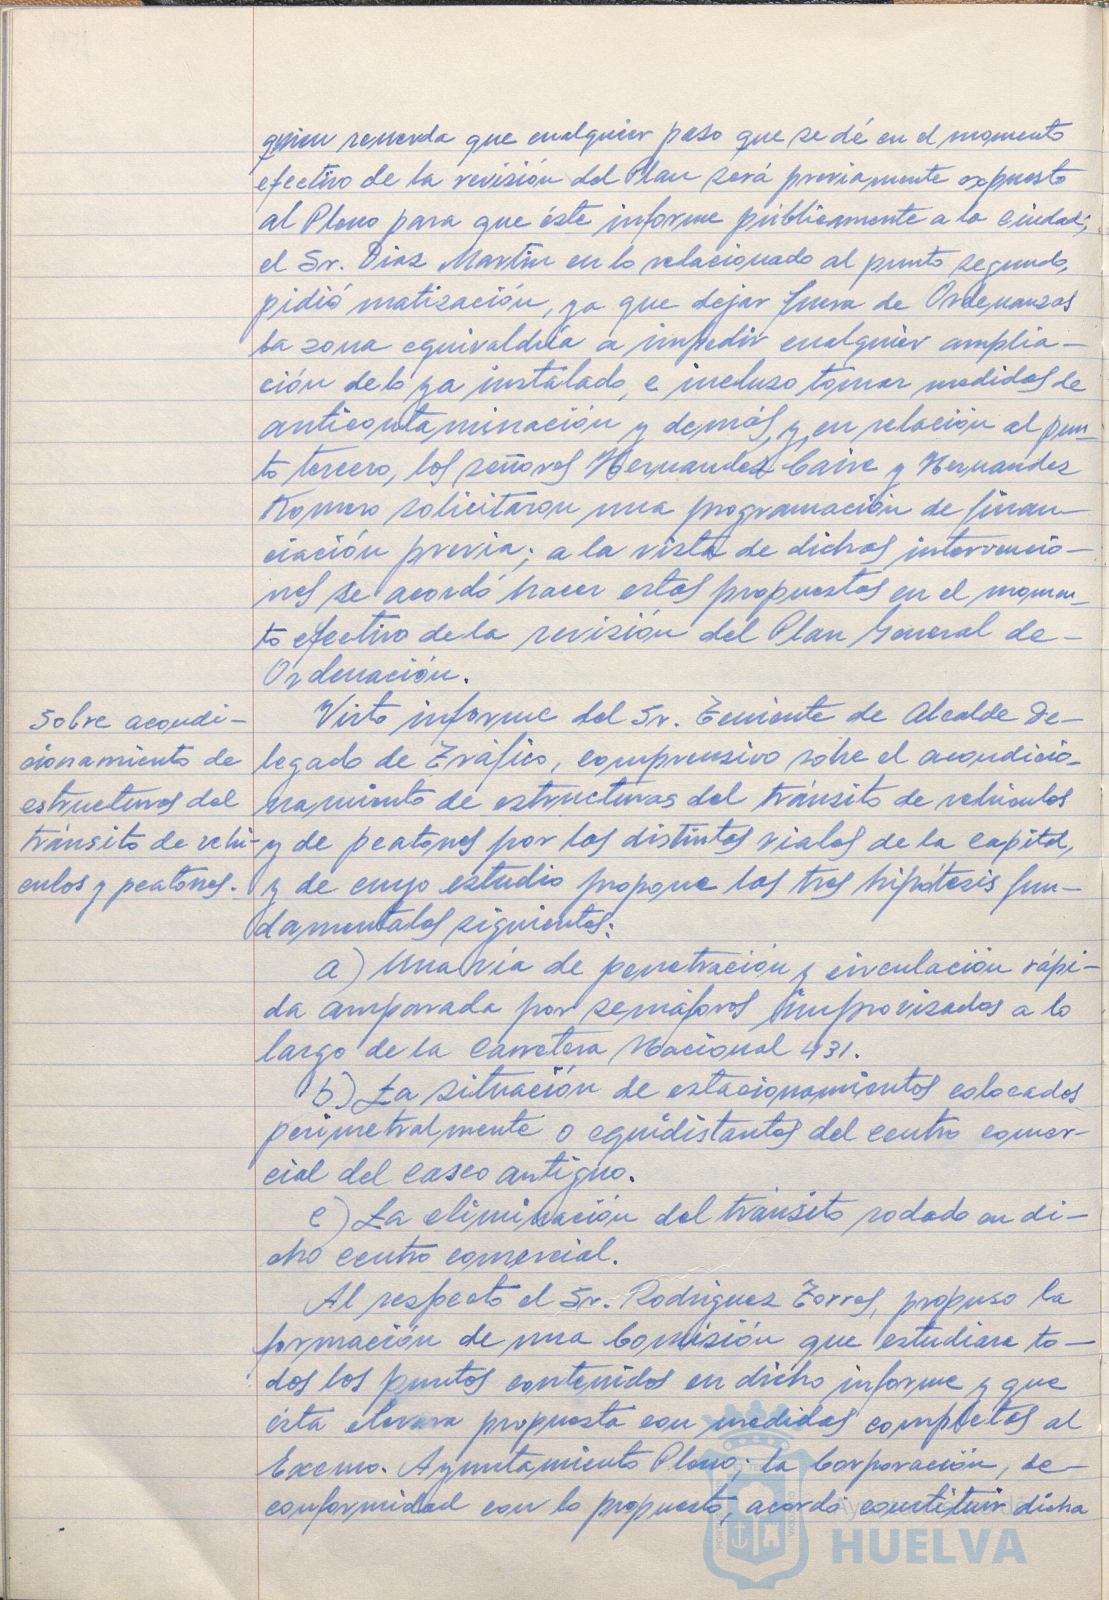 quien recuerda que cualquier paso que se dé en el momento
efectivo de la revisión del Plan será previamente expuesto
al Pleno para que éste informe públicamente a la ciudad;
el Sr. Diaz Martin en lo relacionado al punto segundo,
pidió matización, ya que dejar fuera de Ordenanzas
la zona equivaldría a impedir cualquier amplia-
ción de lo ya instalado, e incluso tomar medidas de
anticontaminación y demás, y, en relación al pun-
to tercero, los señores Hernandez Caire y Hernandez
Romero solicitaron una programación de finan-
ciación previa; a la vista de dichas intervencio-
nes se acordó hacer estas propuestas en el momen-
to efectivo de la revisión del Plan General de-
Ordenación.
Sobre acondi-
cionamiento de
estructuras del
tránsito de vehi-
culos y peatones.
Visto informe del Sr. Teniente de Alcalde De-
legado de Tráfico, comprensivo sobre el acondicio-
namiento de estructuras del tránsito de vehiculos
y de peatones por los distintos viales de la capital,
y de cuyo estudio propone las tres hipótesis fun-
damentales siguientes:
a) Una via de penetración y circulación rápi-
da amparada por semáforos improvisados a lo
largo de la Carretera Nacional 431.
b) La situación de estacionamientos colocados
perimetralmente o equidistantes del centro comer-
cial del casco antiguo.
c) La eliminación del tránsito rodado en di-
cho centro comercial.
Al respecto el Sr. Rodriguez Torres, propuso la
formación de una Comisión que estudiara to-
dos los puntos contenidos en dicho informe y que
ésta elevara propuesta con medidas completas al
Excmo. Ayuntamiento Pleno; la Corporación, de-
conformidad con lo propuesto, acordó constituir dicha
HUELVA